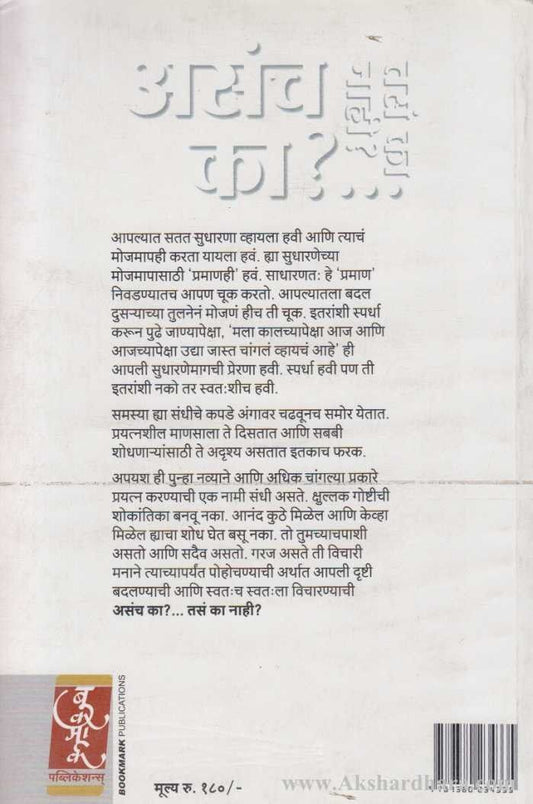 असंच
का?...
तसं का
नाही?
आपल्यात सतत सुधारणा व्हायला हवी आणि त्याचं
मोजमापही करता यायला हवं. ह्या सुधारणेच्या
मोजमापासाठी 'प्रमाणही' हवं. साधारणतः हे 'प्रमाण'
निवडण्यातच आपण चूक करतो. आपल्यातला बदल
दुसऱ्याच्या तुलनेनं मोजणं हीच ती चूक. इतरांशी स्पर्धा
करून पुढे जाण्यापेक्षा, 'मला कालच्यापेक्षा आज आणि
आजच्यापेक्षा उद्या जास्त चांगलं व्हायचं आहे' ही
आपली सुधारणेमागची प्रेरणा हवी. स्पर्धा हवी पण ती
इतरांशी नको तर स्वतःशीच हवी.
समस्या ह्या संधीचे कपडे अंगावर चढवूनच समोर येतात.
प्रयत्नशील माणसाला ते दिसतात आणि सबबी
शोधणाऱ्यांसाठी ते अदृश्य असतात इतकाच फरक.
अपयश ही पुन्हा नव्याने आणि अधिक चांगल्या प्रकारे
प्रयत्न करण्याची एक नामी संधी असते. क्षुल्लक गोष्टीची
शोकांतिका बनवू नका. आनंद कुठे मिळेल आणि केव्हा
मिळेल ह्याचा शोध घेत बसू नका. तो तुमच्याचपाशी
असतो आणि सदैव असतो. गरज असते ती विचारी
मनाने त्याच्यापर्यंत पोहोचण्याची अर्थात आपली दृष्टी
बदलण्याची आणि स्वतःच स्वतःला विचारण्याची
असंच का?... तसं का नाही?
बुकमार्क
पब्लिकेशन्स
BOOKMARK PUBLICATIONS
मूल्य रु. १८०/-
www.Akshardhara.com